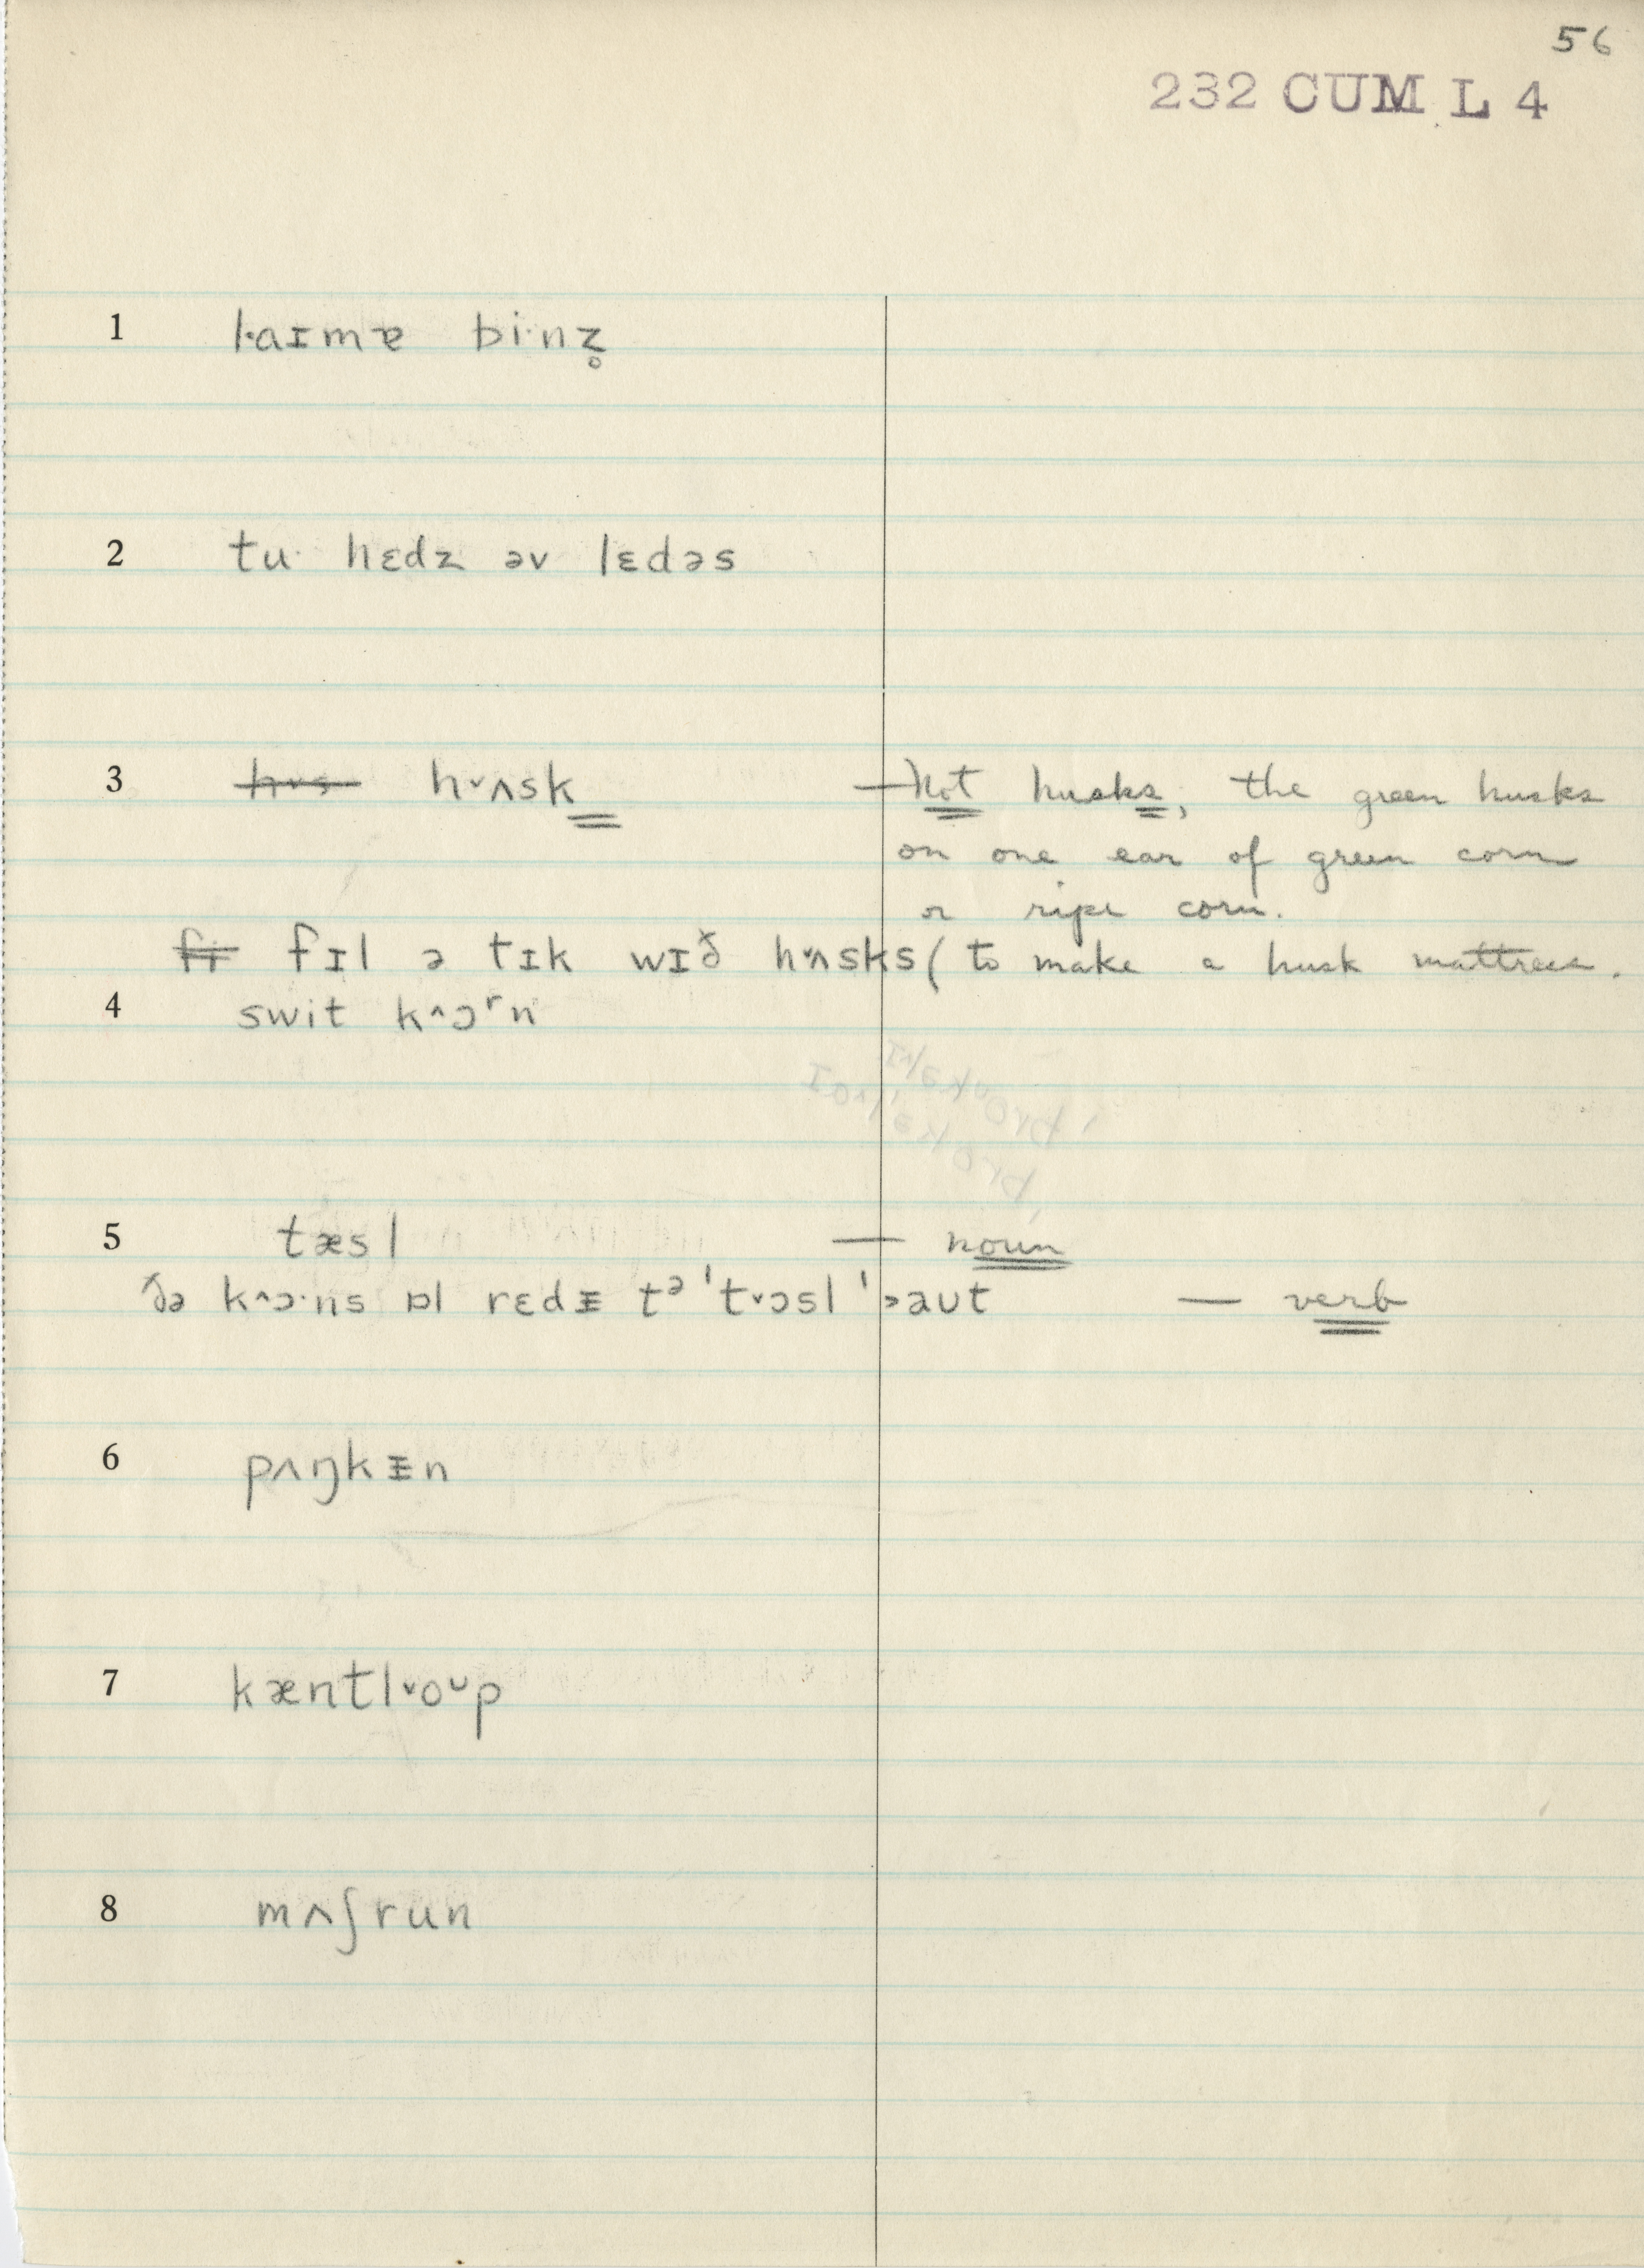 56
232 CUM L 4
1 l·aɪmɐ bi·nz̥
2 tu· hɛdz əv lɛdəs
3 hʌs h˅ʌsk — Not husks, the green husks
on one ear of green corn
or ripe corn.
fɪ fɪl ə tɪk wɪð h˅ʌsks (to make a husk mattress.
4 swit k^ɔʳn
5 tæsl — noun
ðə k^ɔ·ns ɒl rɛdᵻ tᵊ 't˅ɔsl '˃aʊt — verb
6 pʌŋkᵻn
7 kæntl˅oᶸp
8 mʌʃrun